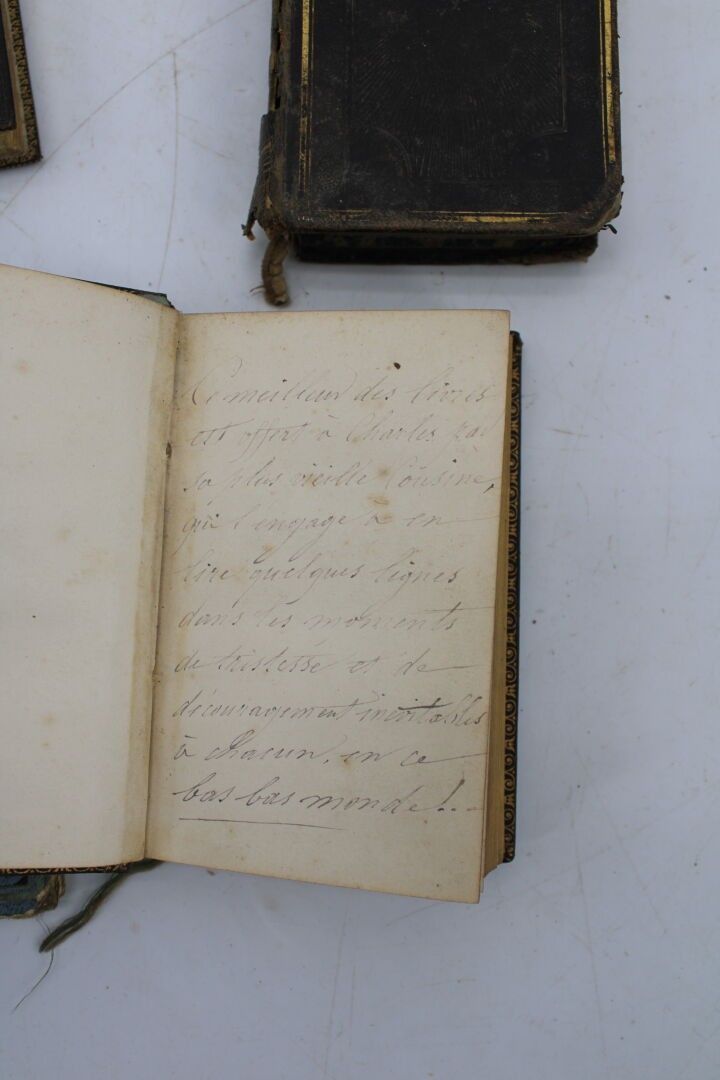 Ce meilleur des livres
est offert à Charles par
sa plus vieille Cousine,
qui l'engage à en
lire quelques lignes
dans les moments
de tristesse et de
découragement inévitables
à chacun, en ce
bas bas monde!..